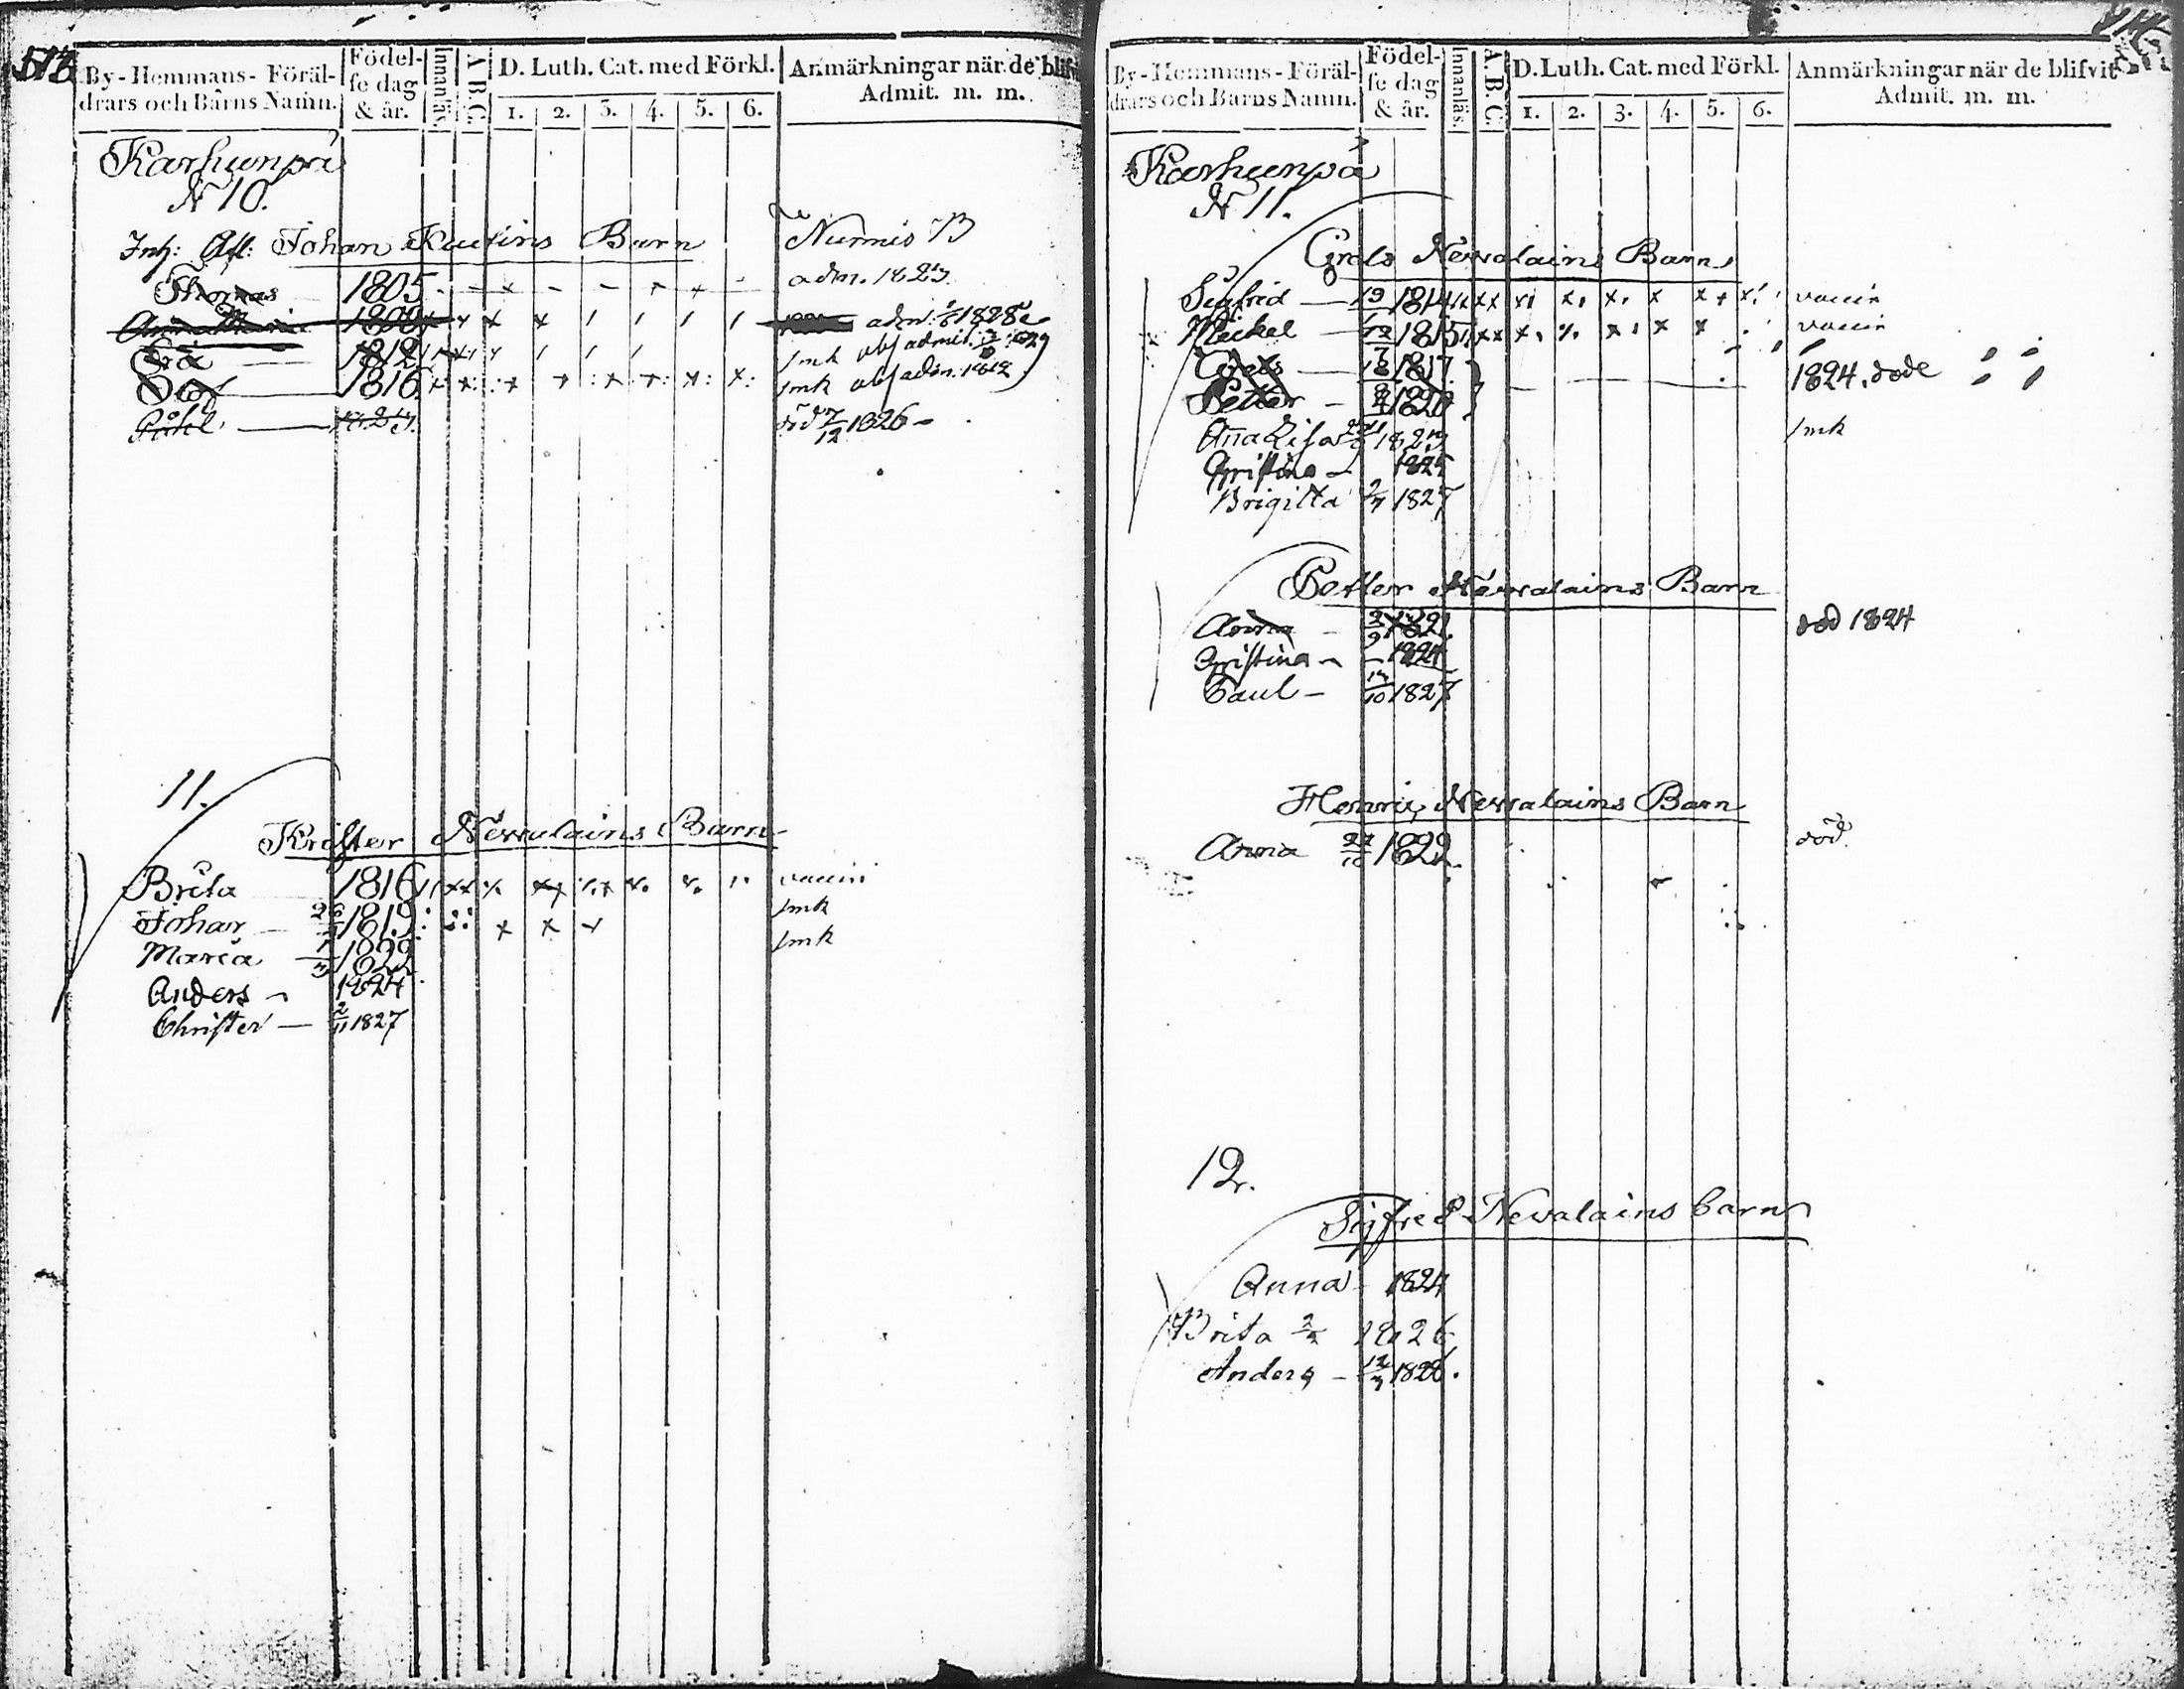 513
By-Hemmans-Föräl-
drars och Barns Namn.
Födel-
se dag
& år.
Innanläs.
A. B. C.
D. Luth. Cat. med Förkl.
1. 2. 3. 4. 5. 6.
Anmärkningar när de blifvit
Admit. m. m.
Karhunpä
N 10.
Inh: Johan Barn
Nurmis B
Thomas — 1805
adm. 1823.
Anna Maria 1808
adm: 1828
1812
smk admit.
Olof 1816
smk adm. 1832
Påhl — 1823.
död 7/12 1826 –
11.
Krister Newalains Barn
Brita 1816
vaccin
Johan — 1819
smk
Maria 1822
smk
Anders – 1824
Christer — 2/11 1827
By-Hemmans-Föräl-
drars och Barns Namn.
Födel-
se dag
& år.
Innanläs.
A. B. C.
D. Luth. Cat. med Förkl.
1. 2. 3. 4. 5. 6.
Anmärkningar när de blifvit
Admit. m. m.
Karhunpä
N 11.
Grels Newalains Barn
Sigfred — 1814
vaccin
Mickel — 1815
vaccin
Grels — 1817
Petter – 1820
1824. döde
Anna Lisa 1823
smk
Christina – 1825
Brigitta 1827
Petter Newalains Barn
Anna – 1821
död 1824
Christina – 1824
Paul – 1827
Henric Newalains Barn
Anna 1822
död.
12.
Sigfred Newalains barn
Anna – 1824
Brita 1826
Anders – 1828.